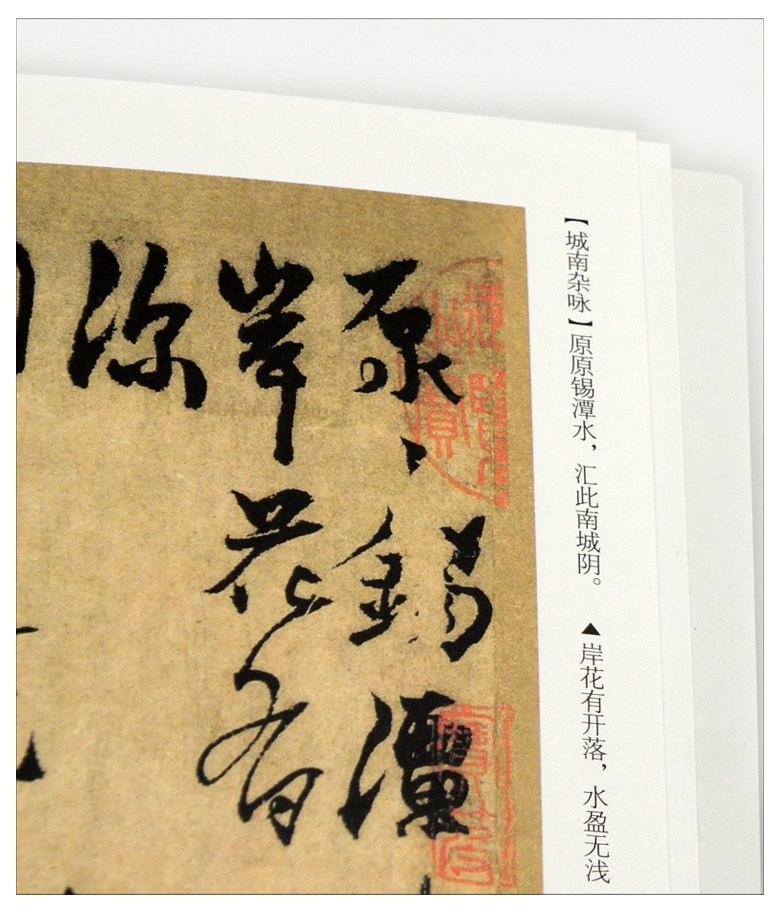 【城南杂咏】原原锡潭水，汇此南城阴。 ▲岸花有开落，水盈无浅
原、錫潭
岸花有
深